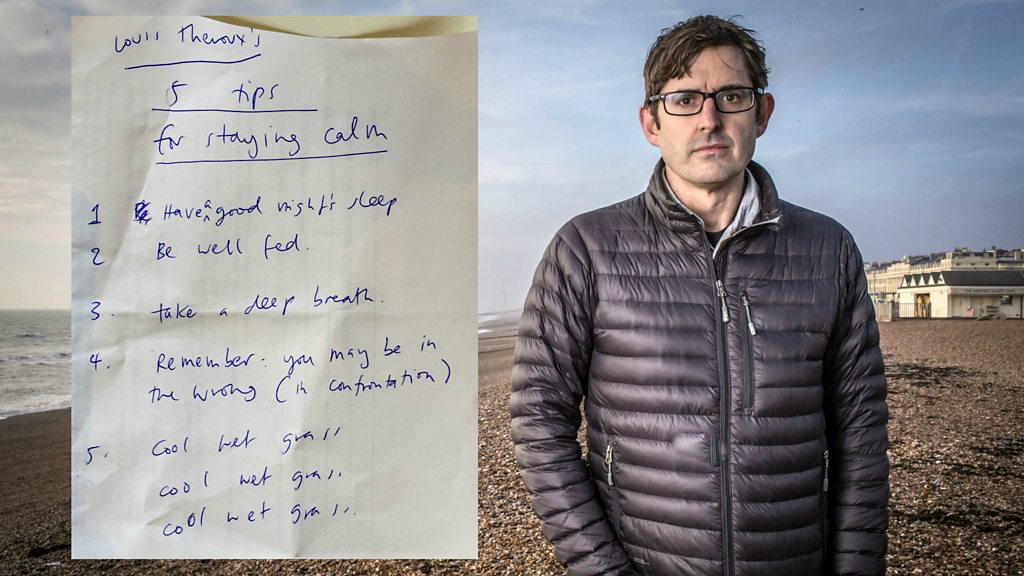 Louis Theroux's
5 tips
for staying calm
1 Have a good night's sleep
2 Be well fed.
3. take a deep breath.
4. Remember: you may be in
the wrong (in confrontation)
5. Cool wet grass
cool wet grass.
cool wet grass.